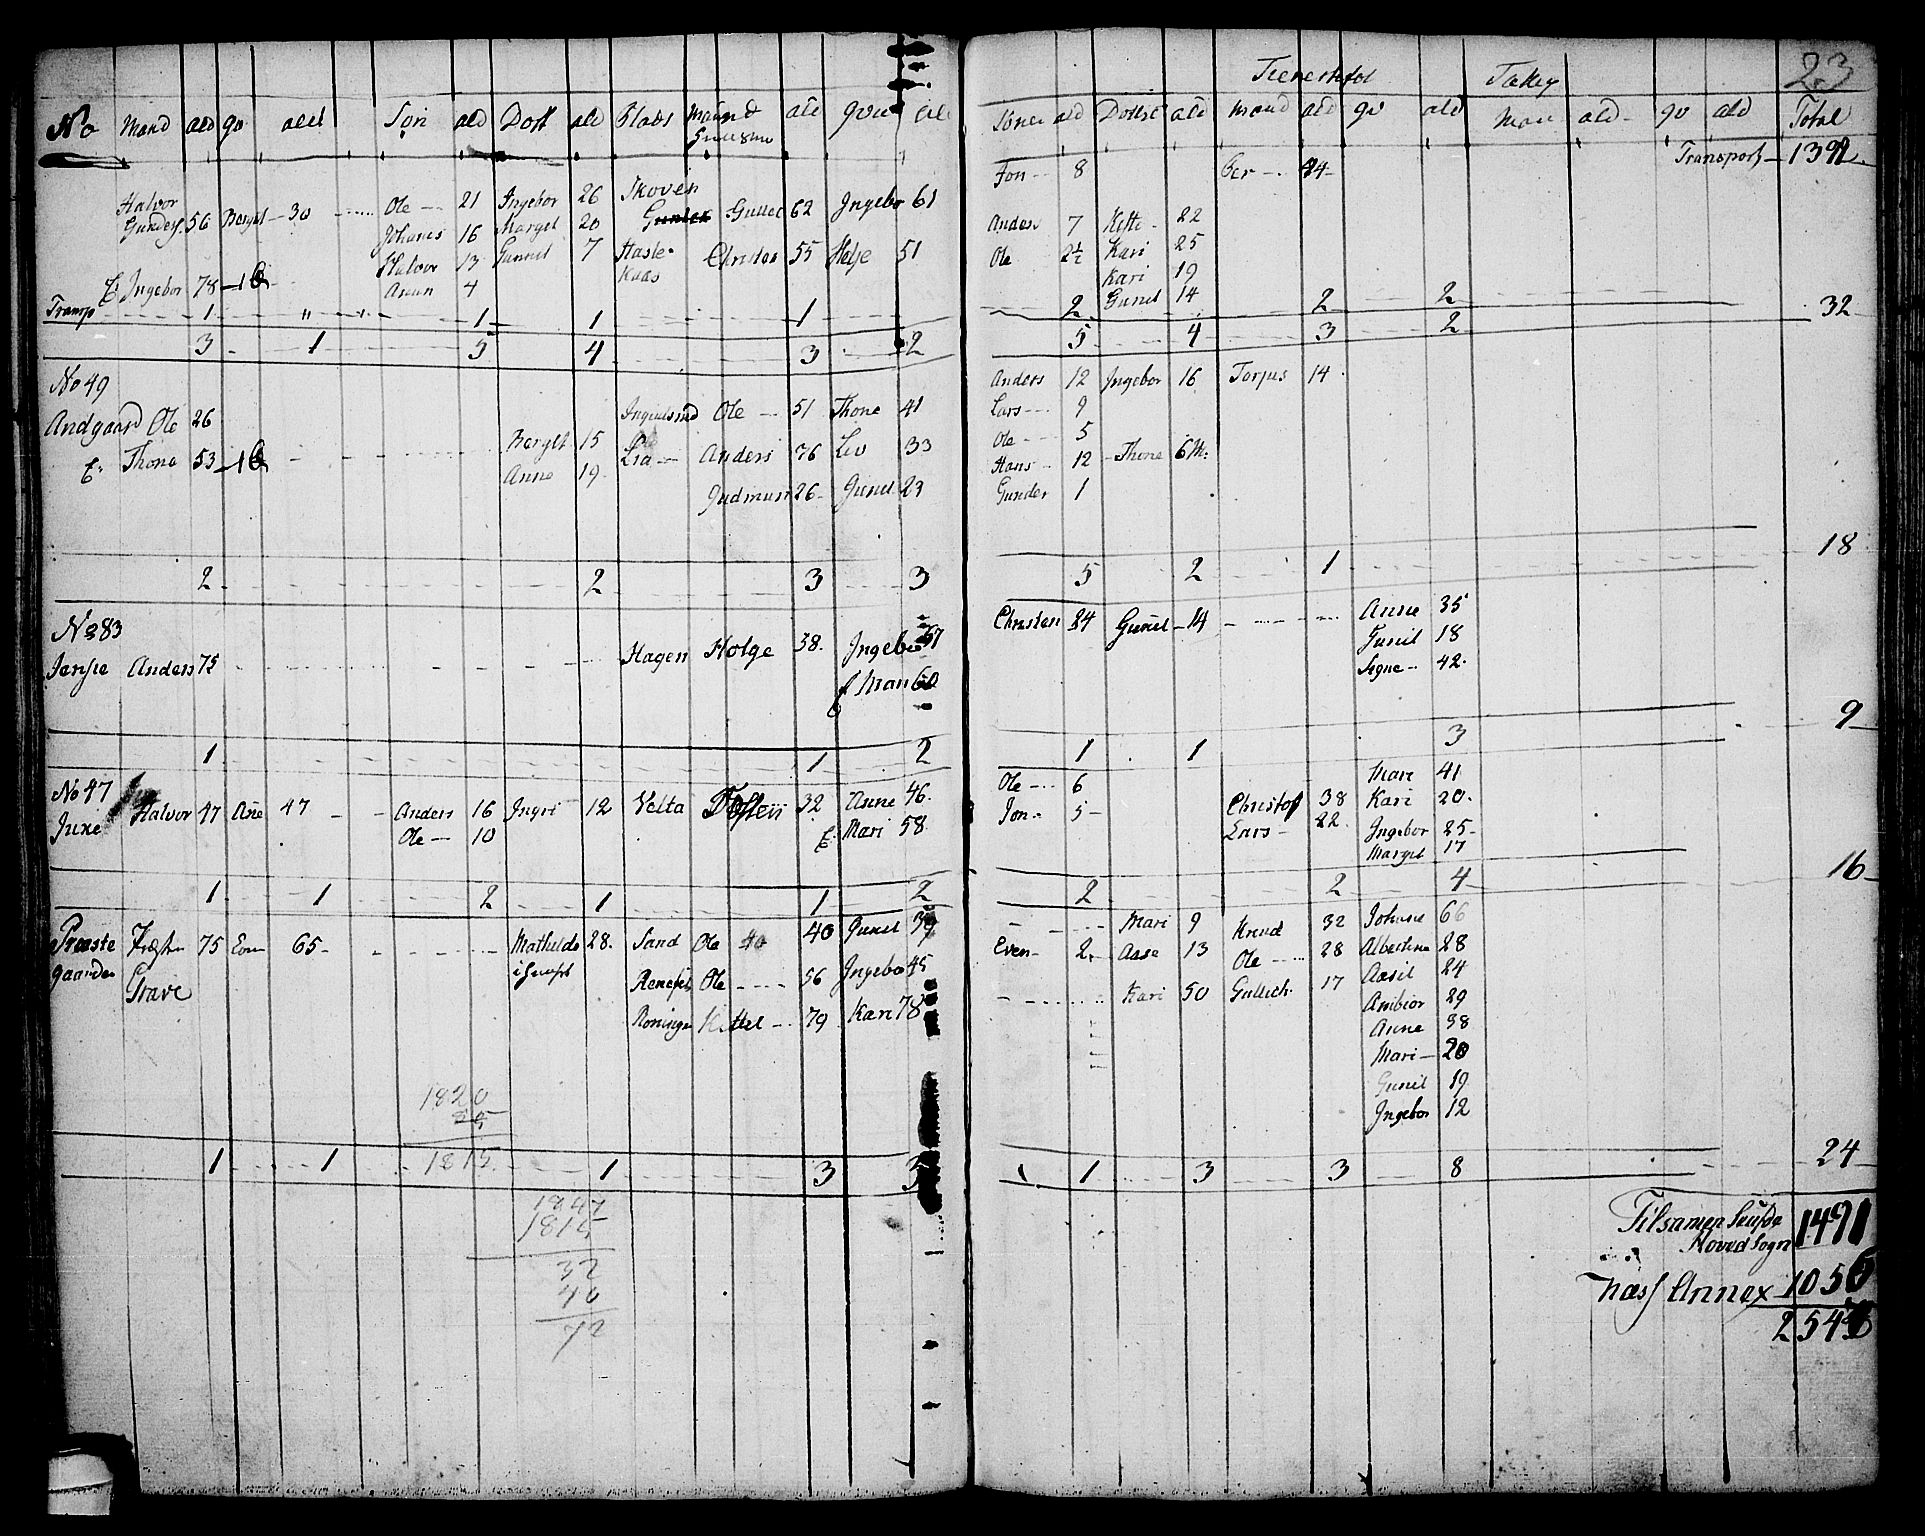 23
Tienestefol
No Mand ald qv ald Søn ald Dott ald Plads Mand ald qvin ald
Sønner ald Dotter ald mand ald qv ald Man ald qv ald Total
Transport 1392
Halvor
Gunders. 56 Borgel 30 Ole 21 Ingebor 26 Skoven Gullec 62 Ingebor 61
Johanes 16 Margel 20
Halvor 13 Gunnil 7 Haste Christen 55 Helje 51
kaas
E. Ingebor 78 Anun 4
Transp 1 " " 1 1 1
3 1 5 4 3 2
Jon 8 Per 14
Anders 7 22
Ole 2½ Kari 25
Kari 19
Gunil 14
2 2 2 32
5 4 3 2
No 49
Andgaard Ole 26 Ole 51 Thone 41
E. Thone 53 Borgel 15 Lia Anders 76 Liv 33
Anne 19 Gudmun 26 Gunil 23
2 2 3 3
Anders 12 Ingebor 16 Torjus 14
Lars 9
Ole 5
Hans 12 Thone 6 M.
Gunder 1
18
5 2 1
No 83
Anders 75 Hagen Holge 38 Ingebor 57
Mari 60
1 1 2
Christen 24 Gunil 14 Anne 35
Gunil 18
Signe 42
9
1 1 3
No 47
Juxe Halvor 47 Ane 47 Anders 16 Ingri 12 Velta Tosten 32 Anne 46
Ole 10 E. Mari 58
1 1 2 1 1 2
Ole 6 Mari 41
Jon 5 Christof 38 Kari 20
Lars 22 Ingebor 25
Margit 17
16
2 2 4
Præste
gaarden 75 65 Mathilde 28 Sand Ole 40 40 Gunil 39
Grave Ole 56 Ingebor 45
Roningen Kittel 79 Kari 78
1820
1815
1 1 1 3 3
1847
1815
32
40
72
Mari 9 Knud 32 Johane 66
Even 2 Asse 13 Ole 28 Albertine 28
Kari 50 Gullich 17 Aasil 24
Anbior 29
Anne 38
Mari 20
Gunil 19
Ingebor 12
24
1 3 3 8
Tilsamen
Hoved Sogn 1491
Næs Annex 1056
2547